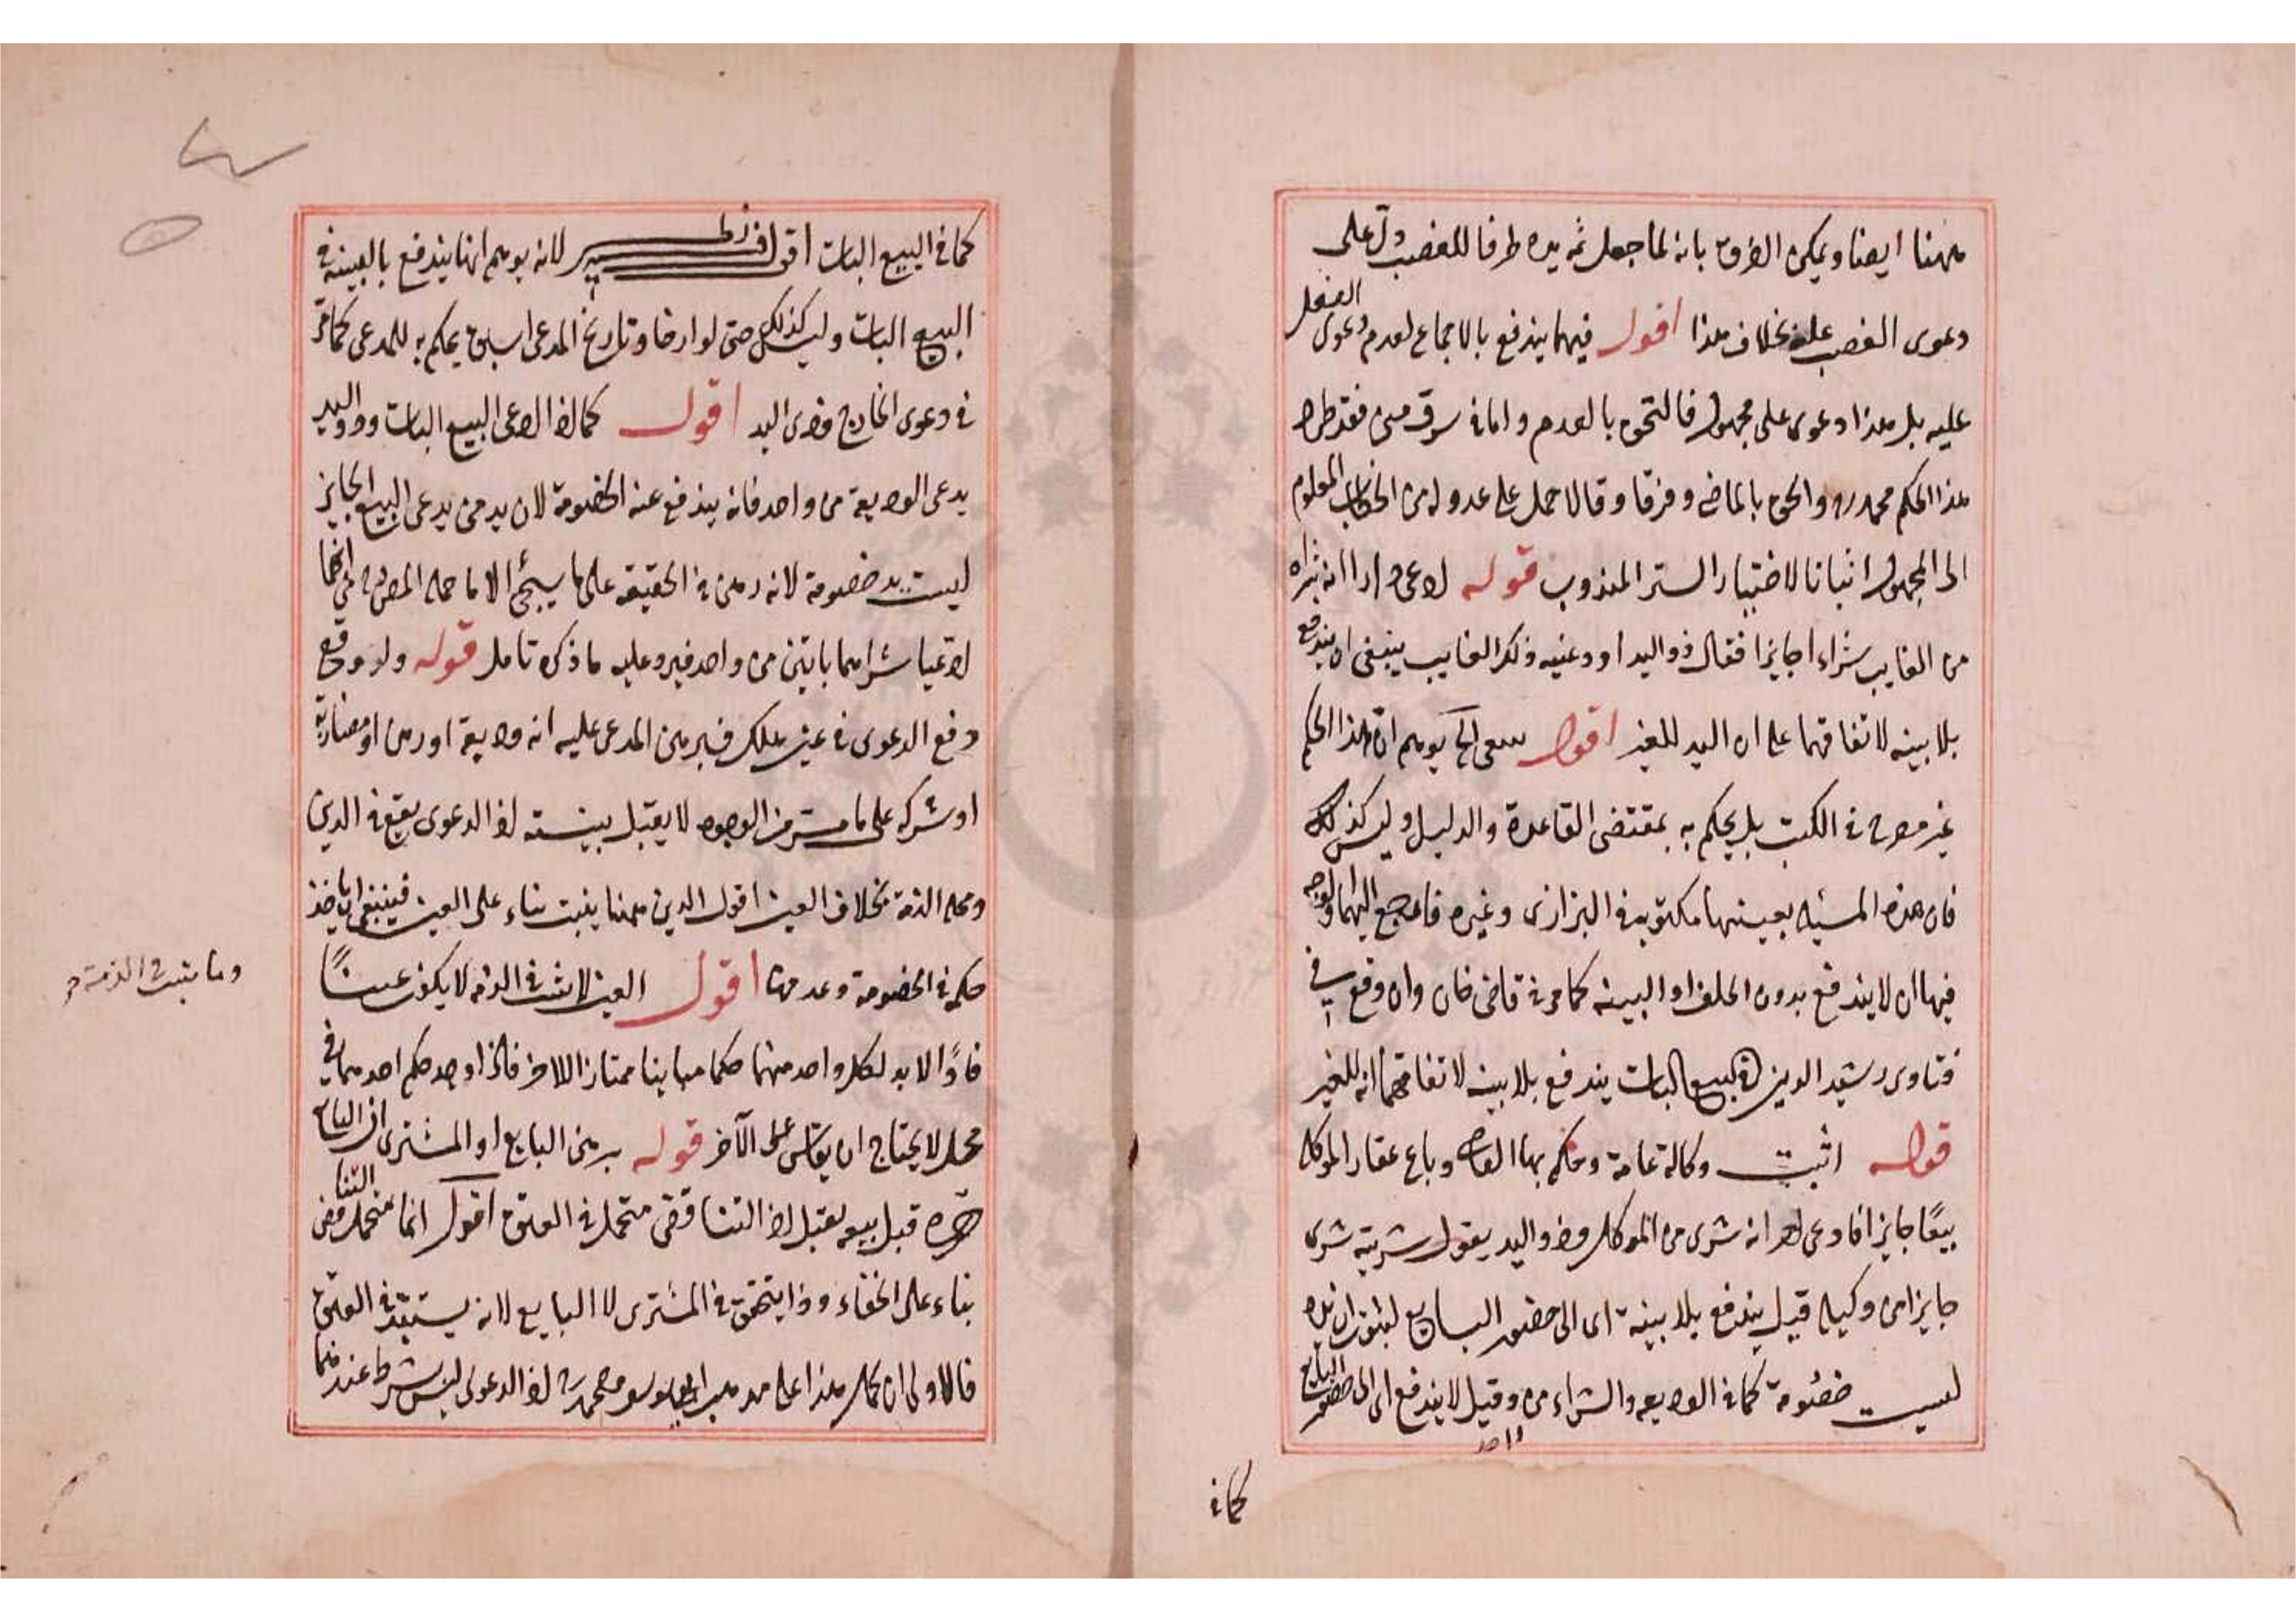 ههنا ايضا ويمكن الفرق بانه لما جعل ثمه يده ظرفا للغصب دل على
دعوى الغصب عليه بخلاف هذا اقول فيهما يندفع بالاجماع لعدم دعوى الفعل
عليه بل هذا دعوى على مجهول فالتحق بالعدم واما في سرق مني فقد طرد
هذا الحكم محمد ره والحق بالماضي وفرقا وقالا حمل على عدوله من المعلوم
الى المجهول اختيار الستر المندوب قوله ادعى دارا انه شراه
من الغايب شراء جايزا فقال ذو اليد اودعنيه ذلك الغايب ينبغي ان يندفع
بلا بينه لاتفاقهما على ان اليد للغير اقول يوهم ان هذا الحكم
غير مصرح في الكتب بل يحكم به بمقتضى القاعدة والدليل وليس كذلك
فان هذه المسئله بعينها مكتوبه في البزازى وغيره فارجع اليها والوجه
فيها ان لا يندفع بدون الحلف او البينه كما مر في قاضي خان وان وقع في
فتاوى رشيد الدين في البيع البات يندفع بلا بينه لاتفاقهما انه للغير
قوله اثبت وكالة عامة وحكم بها القاضي وباع عقار الموكل
بيعا جايزا فادعى احد انه شرى من الموكل وذو اليد يقول شريته شرى
جايزا من وكيله قيل يندفع بلا بينة اى الى حضور البايع لثبوت ان يده
ليست خصومة كما في الوديعه والشراء من واحد وقيل لا يندفع اى الى حضور البايع
كما في
كما في البيع البات اقول لانه يوهم انها يندفع بالبينه في
البيع البات وليس كذلك حتى لو ارخا وتاريخ المدعى اسبق يحكم به للمدعى كما مر
في دعوى الخارج وذى اليد اقول كما اذا ادعى البيع البات وذو اليد
يدعى الوديعة من واحد فانه يندفع عنه الخصومة لان يد من يدعى البيع الجايز
ليست يد خصومة لانه رهن في الحقيقه على ما سيجئ الا ما حمله المصرح في انهما
ادعيا شراهما باتين من واحد فيرد عليه ما ذكره تامل قوله ولو وقع
دفع الدعوى في عين هلك فبرهن المدعى عليه انه وديعة او رهن او مضاربة
او شركه على ما مر من الوجوه لا يقبل بينته اذ الدعوى يقع في الدين
ومحله الذمة بخلاف العين اقول الدين ههنا يثبت بناء على العين فينبغى ان ياخذ
حكمه في الخصومة وعدمها اقول العين لا يثبت في الذمه لا يكون عينًا
وما يثبت في الذمة
فاذًا لا بد لكل واحد منهما حكما مباينا ممتازا للاخر فاذا وجد حكم احدهما في
محل لا يحتاج ان يقاس على الآخر قوله برهن البايع او المشترى ان البايع
حرره قبل بيعه يقبل اذ التناقض متحمل في العتق اقول انما يتحمل التناقض
بناء على الخفاء وذا يتحقق في المشترى لا البايع لانه يستبد في العتق
فالاولى ان يحمل هذا على مذهب ابي يوسف ومحمد ره اذ الدعوى ليس بشرط عندهما